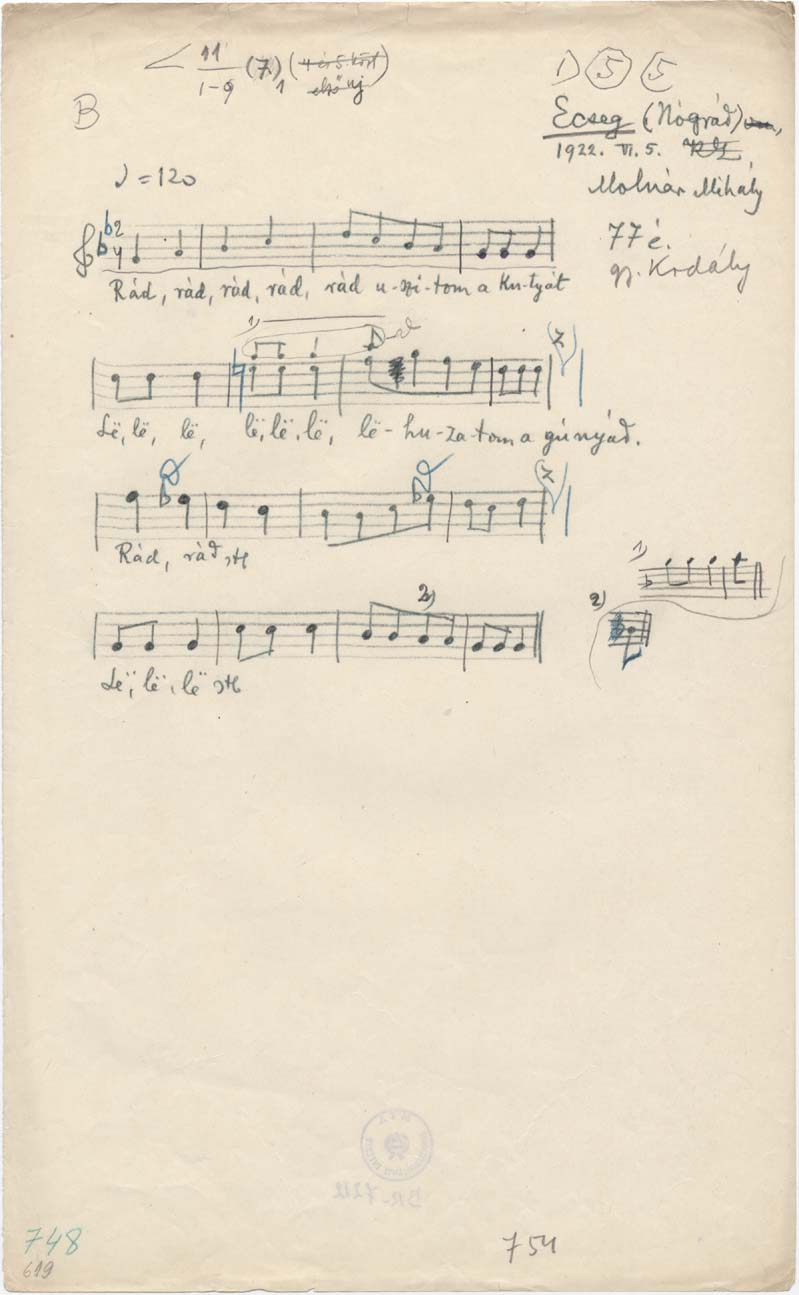 11
1-9 (7,) (4 és 5. köz
1 első új)
1) 5 5
B
Ecseg (Nógrád)
1922. VI. 5.
♩ = 120
Molnár Mihály
77 é.
gy. Kodály
2
4
Rád, ràd, ràd, rád, rád u-szi-tom a ku-tyát
1)
7
Lë, lë, lë, lë, lë, lë, lë-hu-za-tom a gúnyád.
7
Rád, ràd, stb
1)
2)
2)
Lë, lë, lë stb
BR-7212
748
619
754